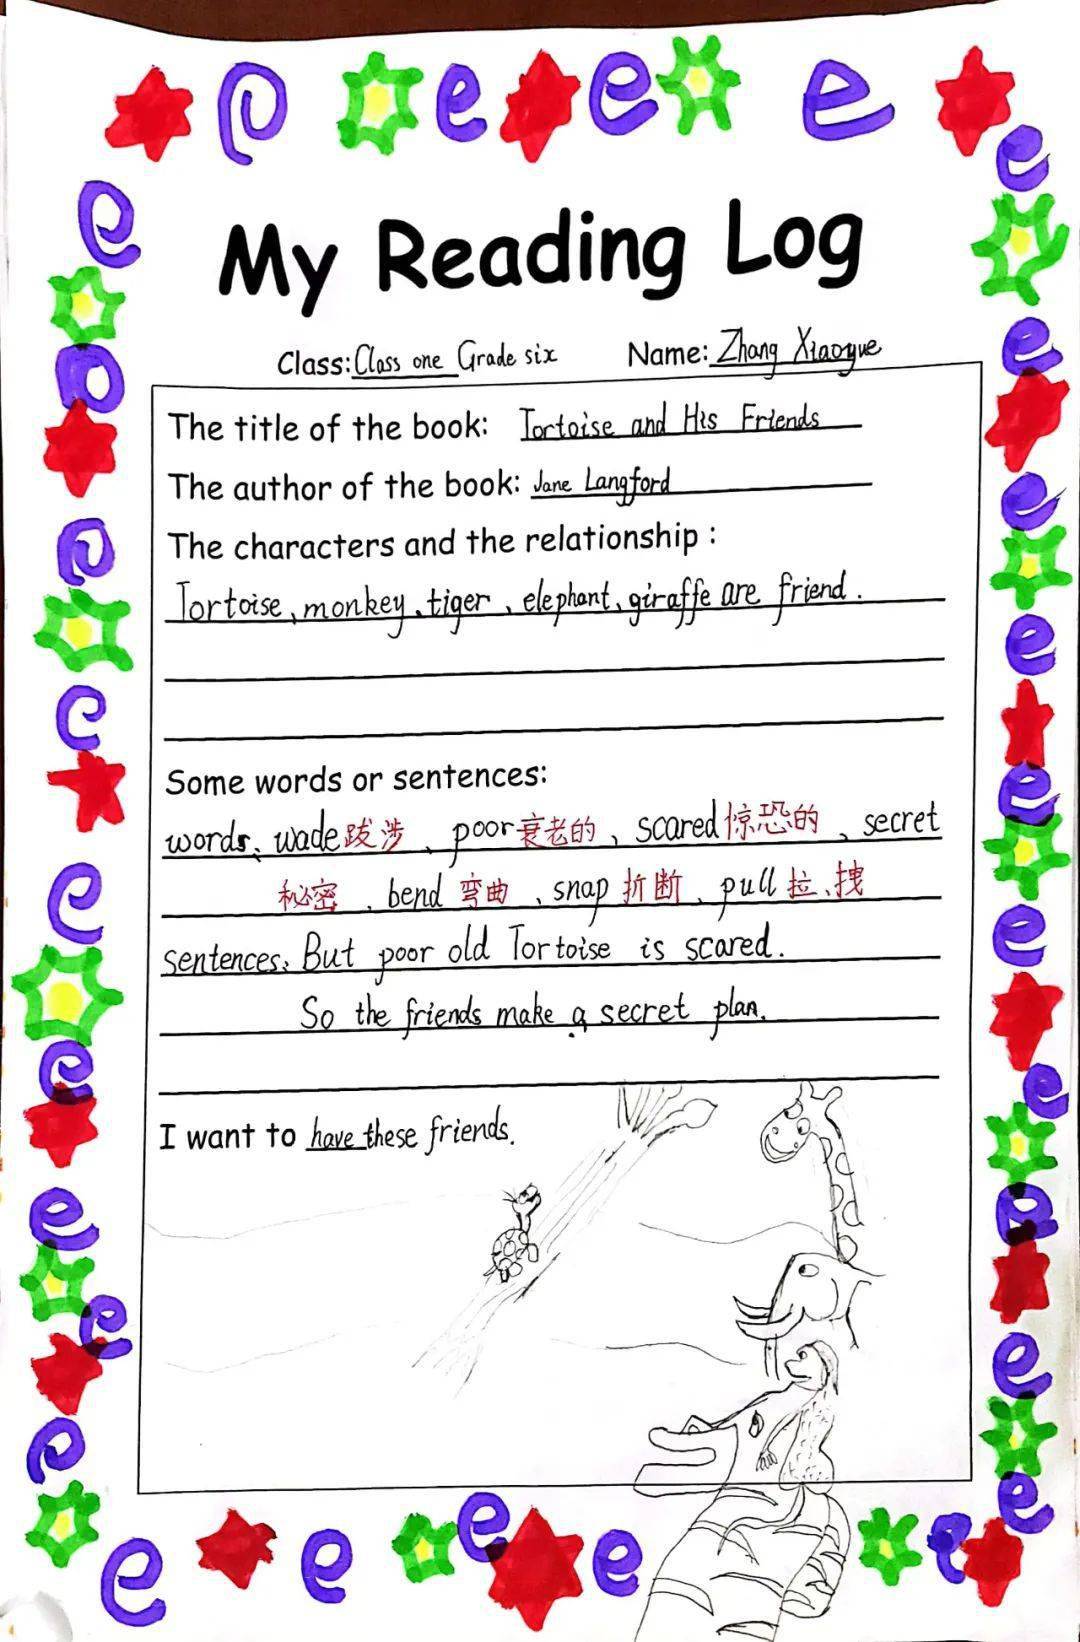 My Reading Log
Class: Class one Grade six Name: Zhang Xiaoyue
The title of the book: Tortoise and His Friends
The author of the book: Jane Langford
The characters and the relationship :
Tortoise、monkey、tiger 、elephant、giraffe are friend .
Some words or sentences:
words、wade跋涉 、poor衰老的 、scared惊恐的 、secret
秘密 、bend 弯曲 、snap 折断 、pull 拉、拽
sentences: But poor old Tortoise is scared.
So the friends make a secret plan.
I want to have these friends.